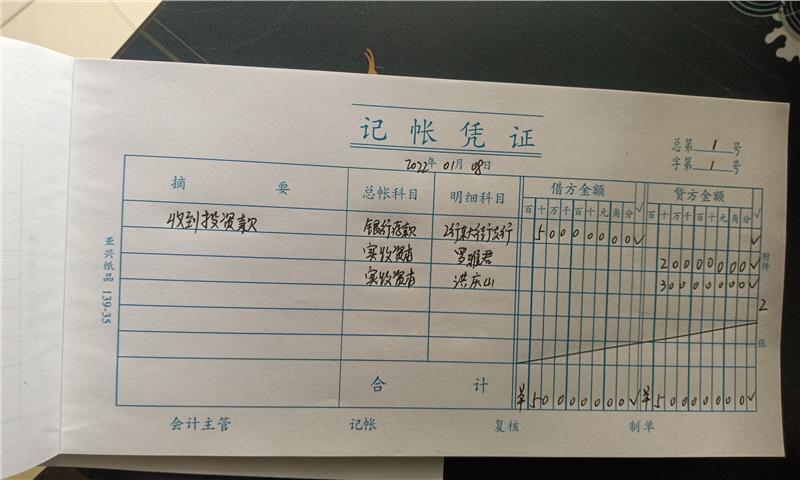 记帐凭证
总第 1 号
2022年 01月 08日
字第 1 号
摘要 总帐科目 明细科目 借方金额 贷方金额
百十万千百十元角分 百十万千百十元角分
收到投资款 银行存款 50000000√ √
实收资本 罗雅君 20000000√
实收资本 洪庆山 30000000√
附件 2 张
合计 ¥50000000√ ¥50000000√
会计主管 记帐 复核 制单
亚兴纸品 139-35